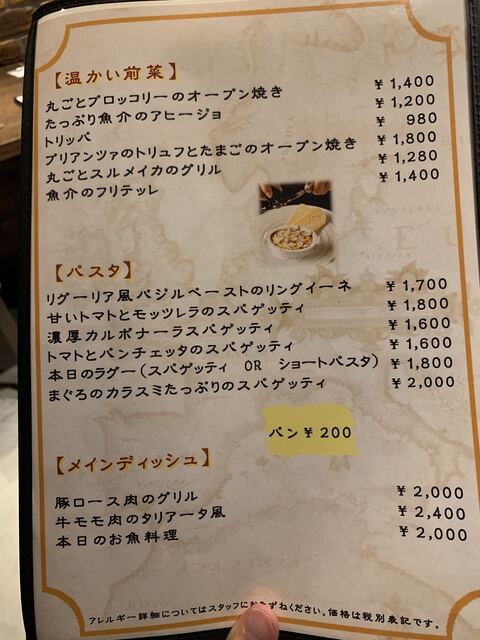 【温かい前菜】
丸ごとブロッコリーのオーブン焼き ¥1,400
たっぷり魚介のアヒージョ ¥1,200
トリッパ ¥ 980
ブリアンツァのトリュフとたまごのオーブン焼き ¥1,800
丸ごとスルメイカのグリル ¥1,280
魚介のフリテッレ ¥1,400
【パスタ】
リグーリア風バジルペーストのリングイーネ ¥1,700
甘いトマトとモッツレラのスパゲッティ ¥1,800
濃厚カルボナーラスパゲッティ ¥1,600
トマトとパンチェッタのスパゲッティ ¥1,600
本日のラグー(スパゲッティ OR ショートパスタ) ¥1,800
まぐろのカラスミたっぷりのスパゲッティ ¥2,000
パン¥200
【メインディッシュ】
豚ロース肉のグリル ¥2,000
牛モモ肉のタリアータ風 ¥2,400
本日のお魚料理 ¥2,000
アレルギー詳細についてはスタッフにおたずねください。価格は税別表記です。